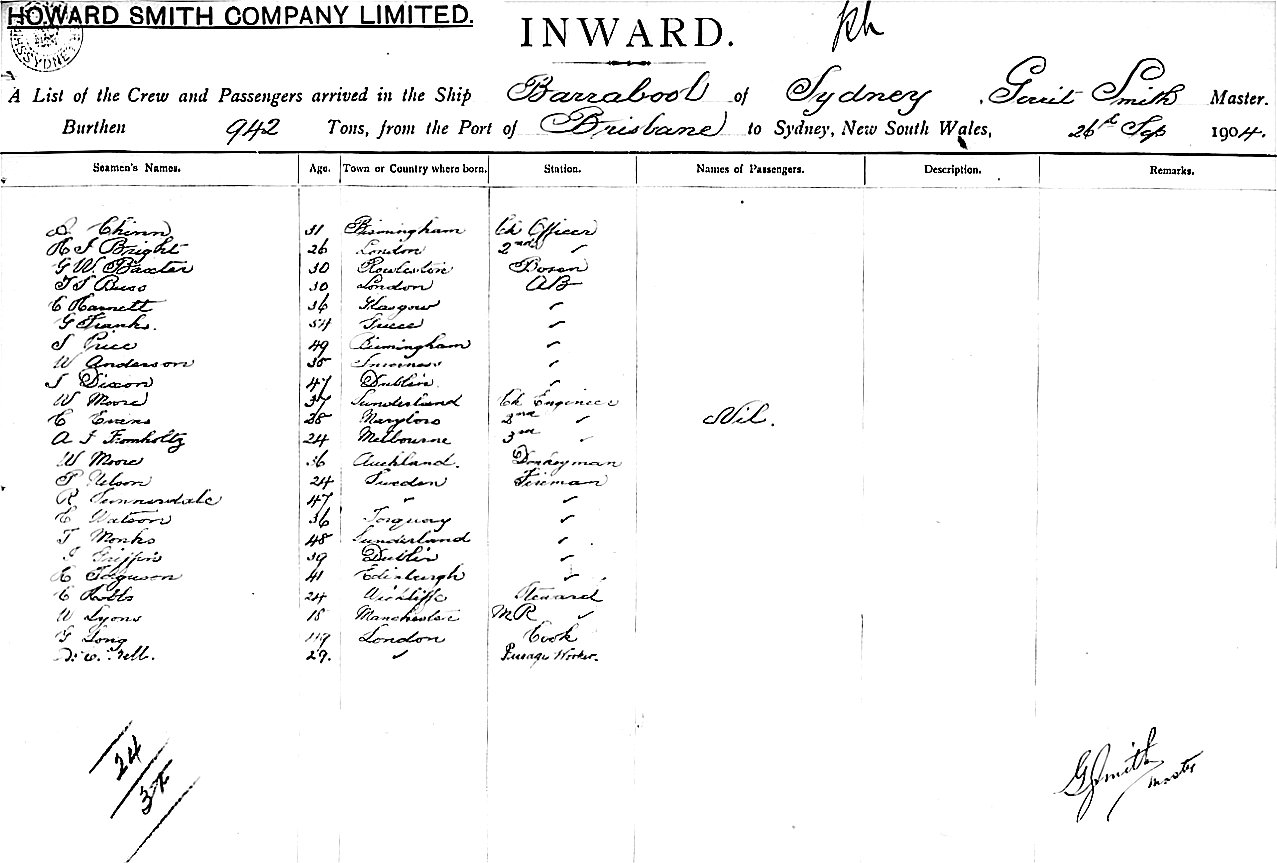 HOWARD SMITH COMPANY LIMITED.
SYDNEY
INWARD.
A List of the Crew and Passengers arrived in the Ship Barrabool of Sydney, Gerrit Smith Master.
Burthen 942 Tons, from the Port of Brisbane to Sydney, New South Wales, 26th Sep 1904.
Seamen's Names. Age. Town or Country where born. Station. Names of Passengers. Description. Remarks.
Chinn 31 Birmingham Ch Officer
H J Bright 26 London 2nd "
G W Baxter 30 Bosen
Buss 30 London AB
C Harnett 36 Glasgow "
G Franks. 54 Greece "
J Price 49 Birmingham "
W Anderson 38 Inverness "
J Dixon 47 Dublin. "
W Moore 37 Sunderland Ch Engineer
E Evens 28 Maryboro 2nd " Nil.
A J Fromholtz 24 Melbourne 3rd "
W Moore 36 Auckland. Donkeyman
P Nelson 24 Sweden Fireman
R 47 " "
E Watson 36 Torquay "
T Monks 48 Sunderland "
J Griffin 39 Dublin "
Ferguson 41 Edinburgh "
C Hobbs 24 Steward
W Lyons 18 Manchester MR "
G Long 49 London Cook
29. " Passage Worker.
24
G Smith
master